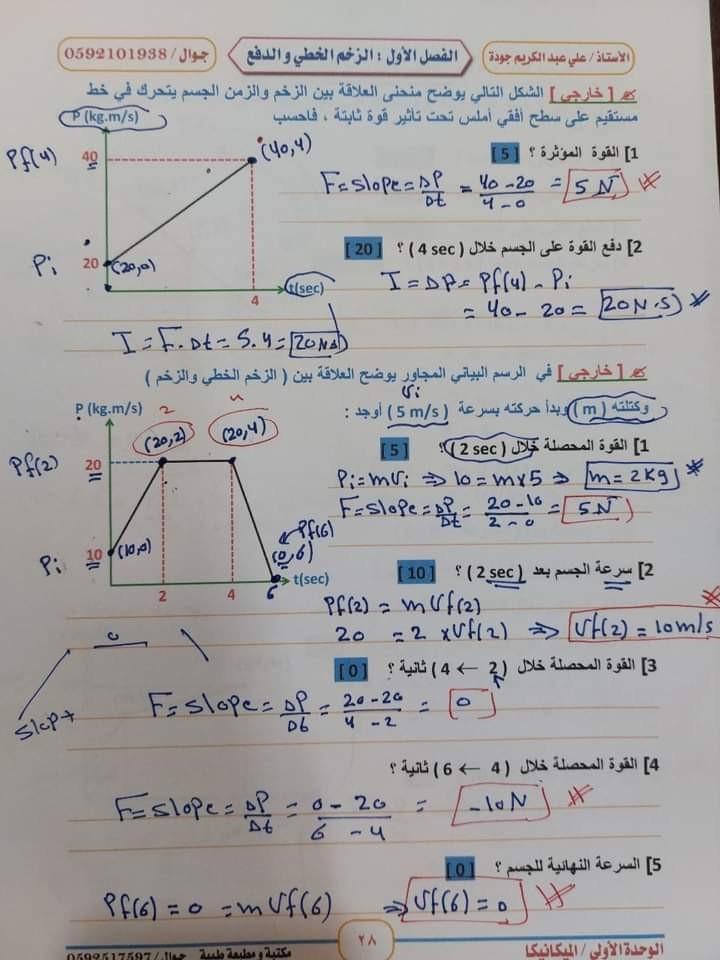 الأستاذ/ علي عبد الكريم جودة
الفصل الأول : الزخم الخطي و الدفع
جوال/ 0592101938
[ خارجي ] الشكل التالي يوضح منحنى العلاقة بين الزخم والزمن لجسم يتحرك في خط
مستقيم على سطح أفقي أملس تحت تأثير قوة ثابتة ، فاحسب
P (kg.m/s)
Pf(4)
40
(40,4)
Pi
20
(20,0)
4
t(sec)
1] القوة المؤثرة ؟ [ 5 ]
F = slope = ΔP/Δt = 40-20/4-0 = 5 N
2] دفع القوة على الجسم خلال ( 4 sec ) ؟ [ 20 ]
I = ΔP = Pf(4) - Pi
= 40 - 20 = 20 N.s
I = F.Δt = 5.4 = 20 N.s
[ خارجي ] في الرسم البياني المجاور يوضح العلاقة بين ( الزخم الخطي والزخم )
وكتلته ( m ) وبدأ حركته بسرعة ( 5 m/s ) أوجد :
vi
P (kg.m/s)
2
4
(20,2)
(20,4)
Pf(2)
20
Pi
10
(10,0)
Pf(6)
(0,6)
2
4
6
t(sec)
1] القوة المحصلة خلال ( 2 sec ) ؟ [ 5 ]
Pi = m vi ⇒ 10 = m×5 ⇒ m = 2 kg
F = slope = ΔP/Δt = 20-10/2-0 = 5 N
2] سرعة الجسم بعد ( 2 sec ) ؟ [ 10 ]
Pf(2) = m vf(2)
20 = 2 × vf(2) ⇒ vf(2) = 10 m/s
3] القوة المحصلة خلال ( 2 → 4 ) ثانية ؟ [ 0 ]
0
slop+
F = slope = ΔP/Δt = 20-20/4-2 = 0
4] القوة المحصلة خلال ( 4 → 6 ) ثانية ؟
F = slope = ΔP/Δt = 0-20/6-4 = -10 N
5] السرعة النهائية للجسم ؟ [ 0 ]
Pf(6) = 0 = m vf(6) ⇒ vf(6) = 0
الوحدة الأولى / الميكانيكا
٢٨
مكتبة و مطبعة طيبة جوال/ 0592517597